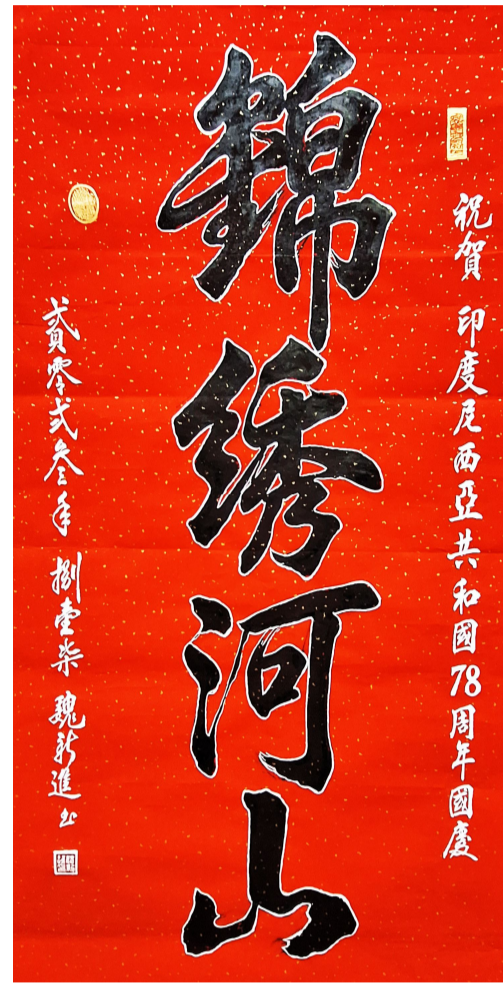 祝賀 印度尼西亞共和國78周年國慶
錦绣河山
貳零貳叄年 捌壹柒 魏新進书